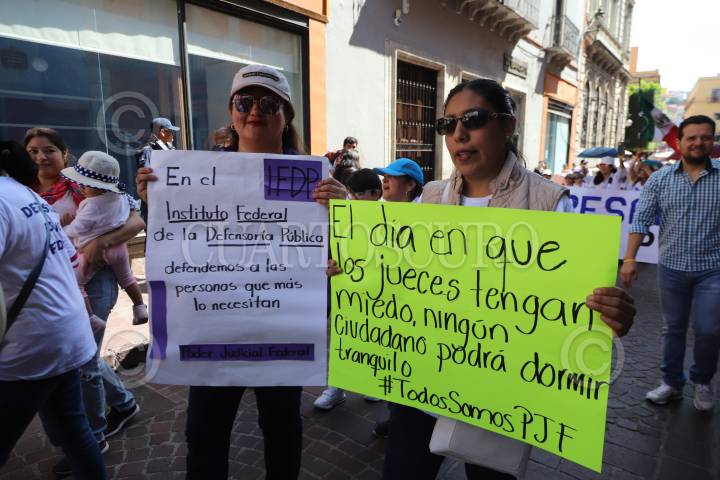 En el IFDP
Instituto Federal
de la Defensoría Pública
defendemos a las
personas que más
lo necesitan
Poder Judicial Federal
El día en que
los jueces tengan
miedo, ningún
ciudadano podrá dormir
tranquilo
#TodosSomosPJF
CUARTOSCURO